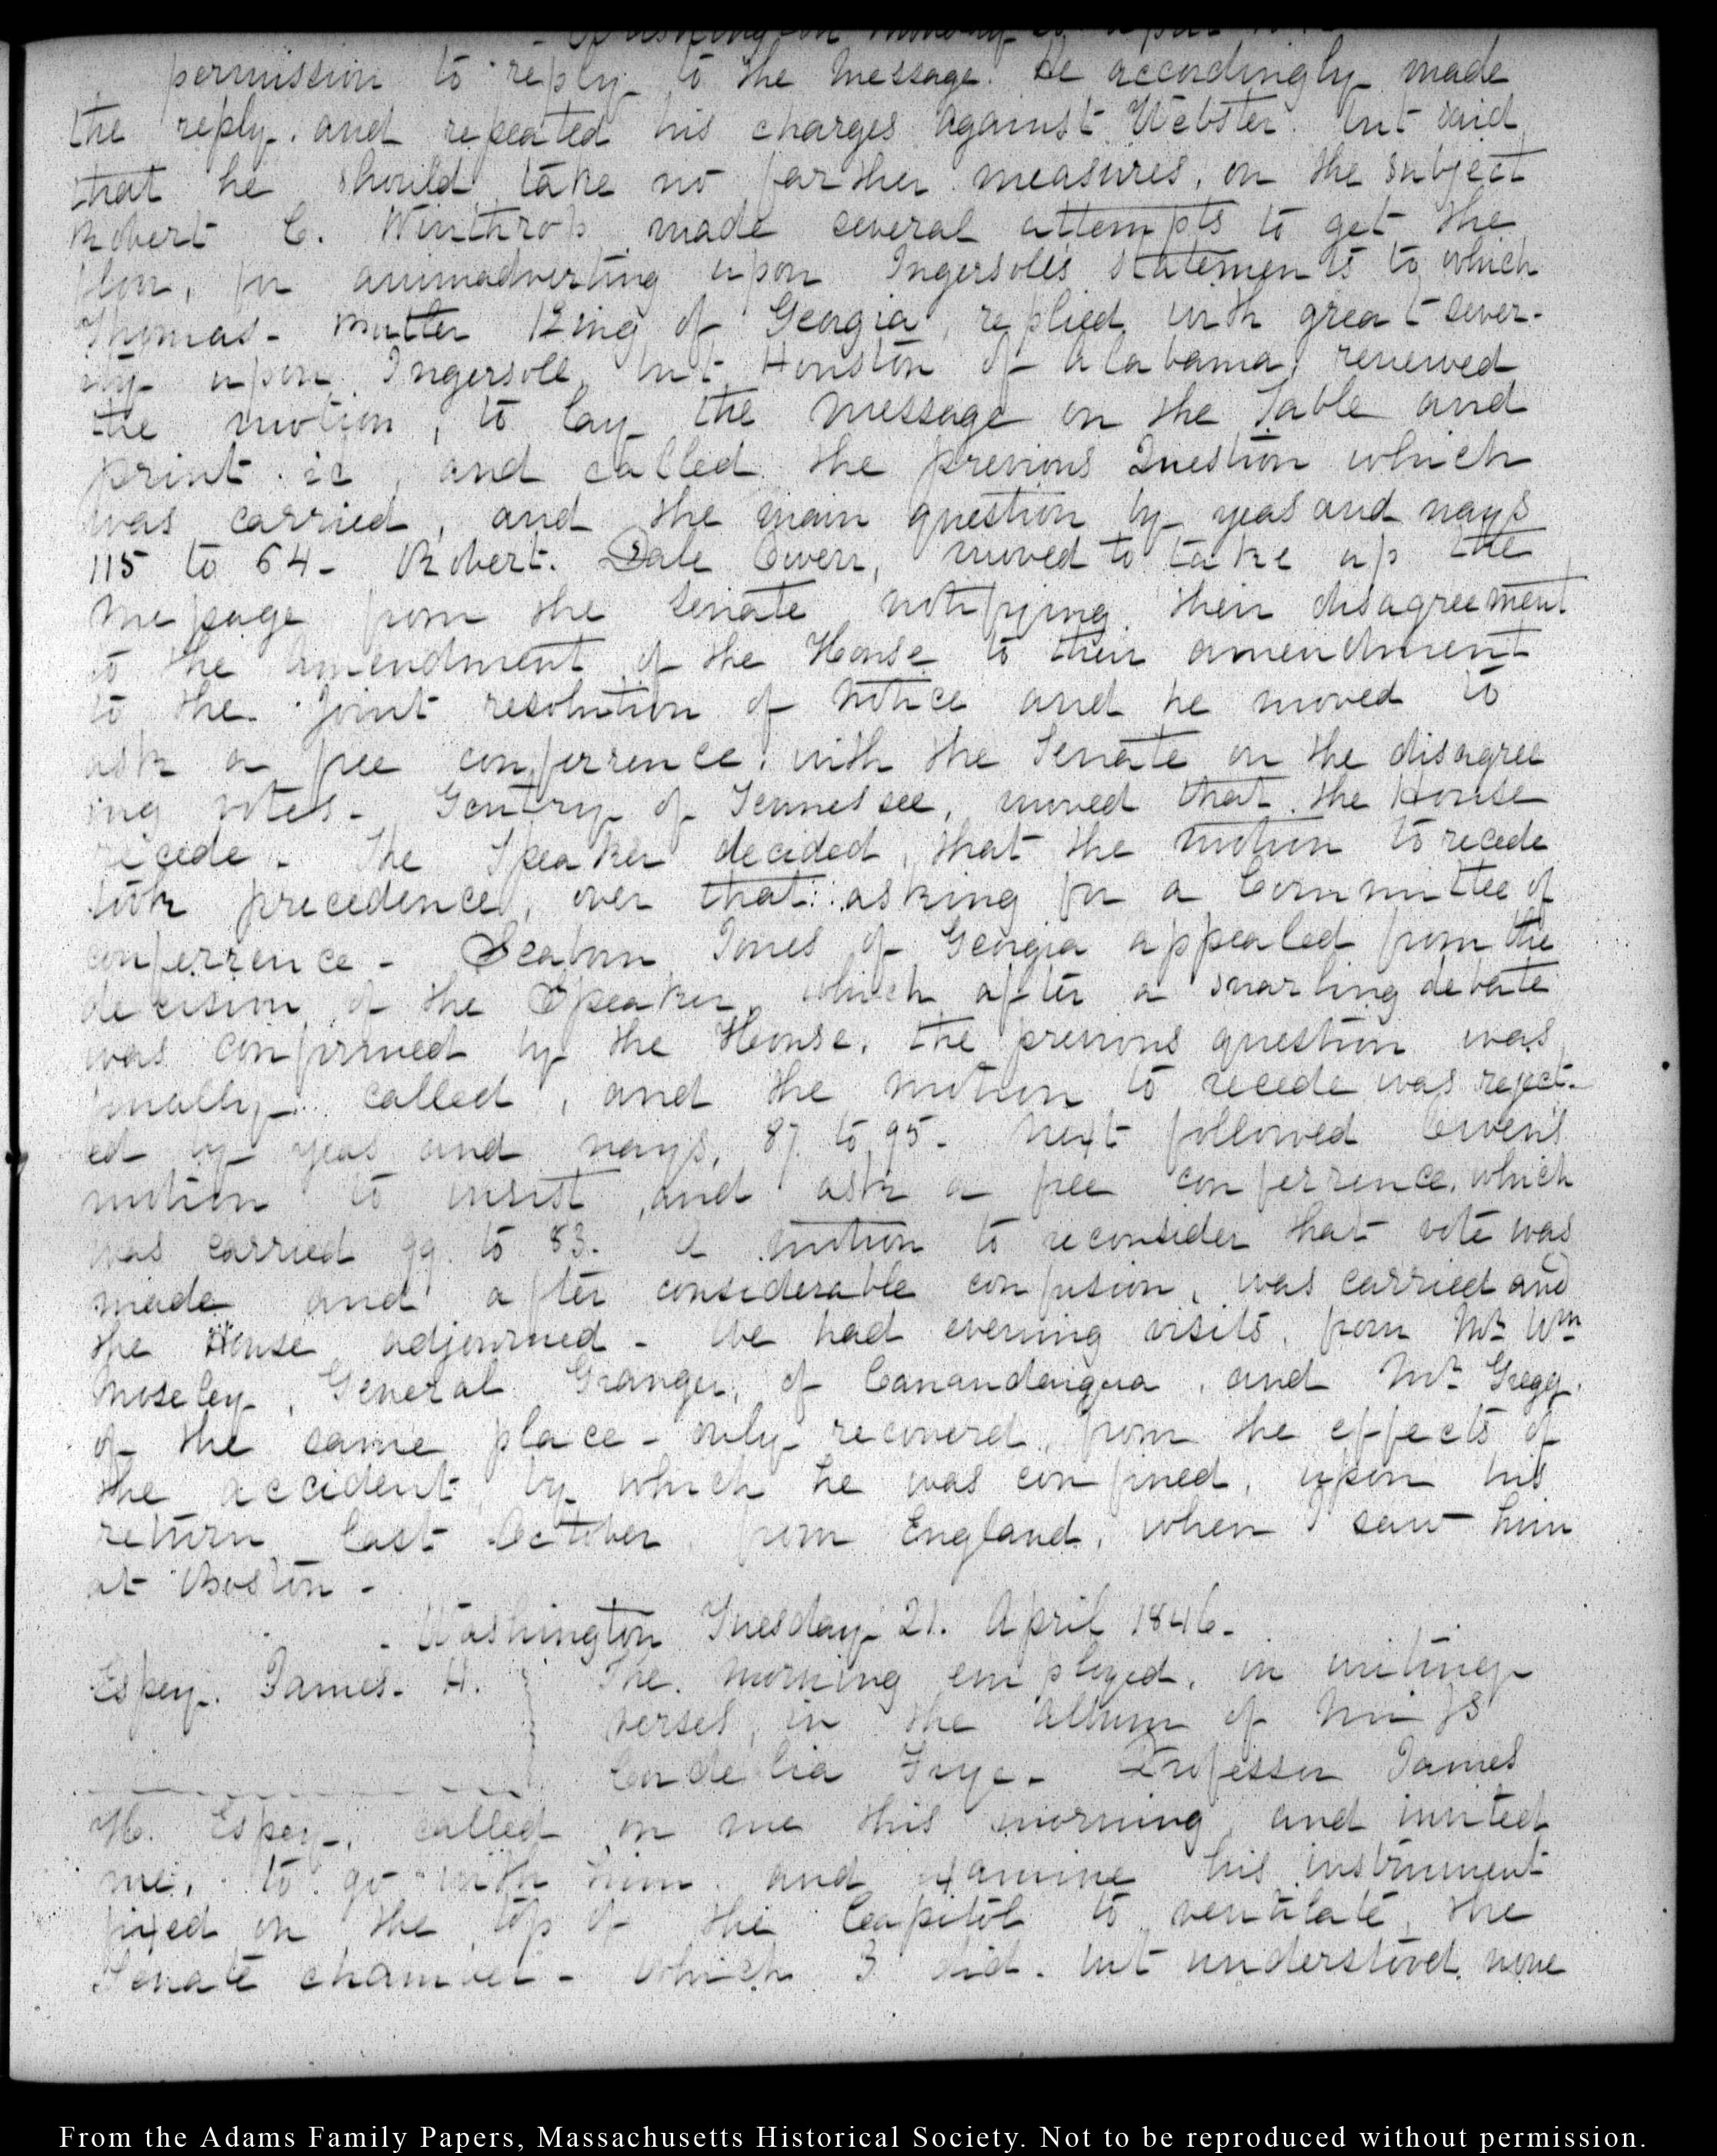 Washington Monday 20 April 1846
permission to reply to the Message. He accordingly made
the reply. and repeated his charges against Webster. but said
that he should take no farther measures, on the subject
Robert C. Winthrop made several attempts to get the
floor, for animadverting upon Ingersoll's statements to which
Thomas- Butler King of Georgia, replied with great sever-
ity upon Ingersoll, but Houston of Alabama, renewed
the motion, to lay the Message on the Table and
print it, and called the previous Question which
was carried, and the main question by yeas and nays
115 to 64- Robert. Dale Owen, moved to take up the
message from the Senate notifying their disagreement
to the amendment of the House to their amendment
to the Joint resolution of Notice and he moved to
ask a free conferrence. with the Senate on the disagree
ing votes- Gentry of Tennessee, moved that the House
recede- The Speaker decided, that the motion to recede
took precedence, over that asking for a Committee of
conferrence- Seaborn Jones of Georgia appealed from the
decision of the Speaker, which after a snarling debate
was confirmed by the House. the previous question was
finally called, and the motion to recede was reject-
ed by yeas and nays, 87 to 95- Next followed Owen's
motion to insist, and ask a free conferrence. which
was carried 99. to 83. A motion to reconsider that vote was
made and after considerable confusion, was carried and
the House adjourned- We had evening visits, from Mr. Wm
Moseley, General Granger, of Canandaigua, and Mr. Gregg.
of the same place- only recoverd, from the effects of
the accident, by which he was confined, upon his
return last October from England, when I saw him
at Boston-
Washington Tuesday 21. April 1846-
Espey. James. H. The morning employed, in writing
verses, in the Album of Miss
Cordelia Frye- Professor James
H. Espey, called on me this morning and invited
me, to go with him and examine his instrument
fixed on the top of the Capitol to ventilate, the
Senate chamber- Which I did. but understood none
From the Adams Family Papers, Massachusetts Historical Society. Not to be reproduced without permission.